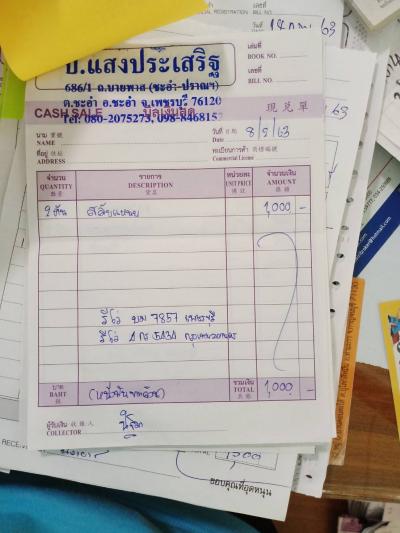 14 กค 63
เล่มที่
BOOK NO.
เลขที่
BILL NO.
บ.แสงประเสริฐ
686/1 ถ.นายพาส (ชะอำ-ปราณฯ)
ต.ชะอำ อ.ชะอำ จ.เพชรบุรี 76120
Tel: 080-2075273, 098-8468157
CASH SALE บิลเงินสด 現兌單
นาม 寶號
NAME
วันที่ 日期 8/5/63
Date
ที่อยู่ 住址
ADDRESS
ทะเบียนการค้า
Commercial License
จำนวน รายการ หน่วยละ จำนวนเงิน
QUANTITY DESCRIPTION UNIT PRICE AMOUNT
數量 貨名 價目 錢額
2 คัน สลับยาง 1,000 -
รีโว่ บม 7857 เพชรบุรี
รีโว่ 4 กร 5434 กรุงเทพมหานคร
บาท (หนึ่งพันบาทถ้วน) รวมเงิน 1,000 -
BAHT TOTAL
銖 共銀
ผู้รับเงิน 收銀人
COLLECTOR
ขอบคุณที่อุดหนุน